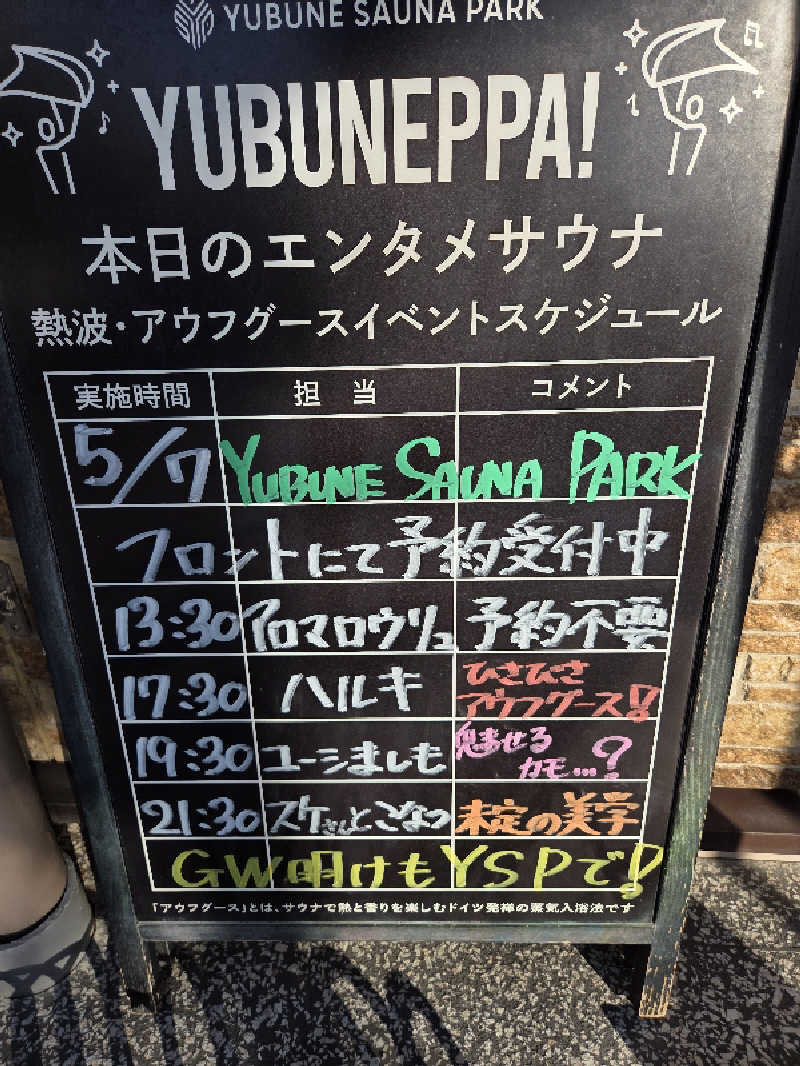 YUBUNE SAUNA PARK
YUBUNEPPA!
本日のエンタメサウナ
熱波・アウフグースイベントスケジュール
実施時間 担当 コメント
5/7 YUBUNE SAUNA PARK
フロントにて予約受付中
13:30 アロマロウリュ 予約不要
17:30 ハルキ ひさひさ
アウフグース!
19:30 ユーシましも 魅せる
カモ…?
21:30 スケさんとこなつ 未定の美学
GW明けもYSPで!
「アウフグース」とは、サウナで熱と香りを楽しむドイツ発祥の蒸気入浴法です